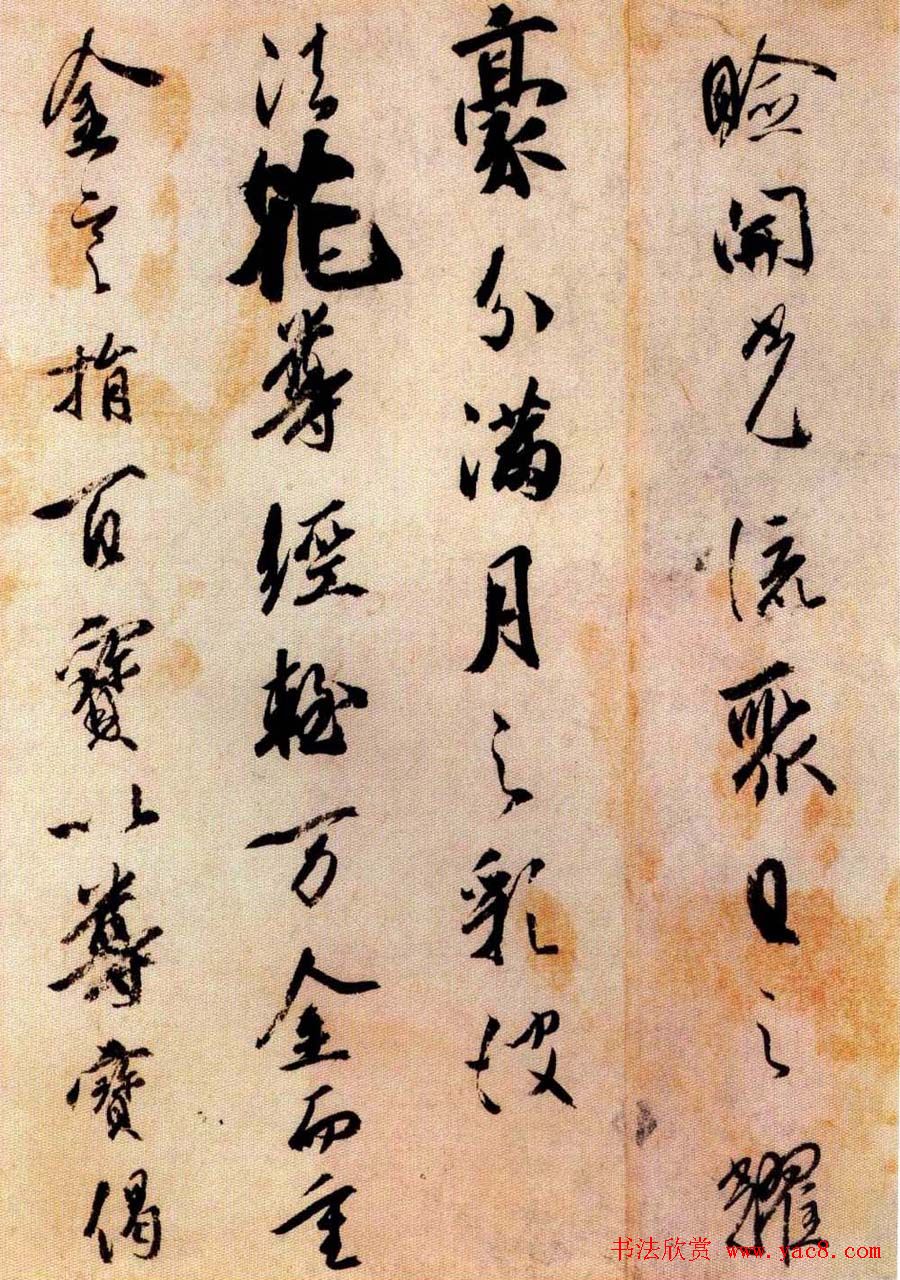 瞼開光流聚日之耀
豪分滿月之彩彼
法花尊經輕万金而重
金言捐百寶以尊寶偈
书法欣赏 www.yac8.com